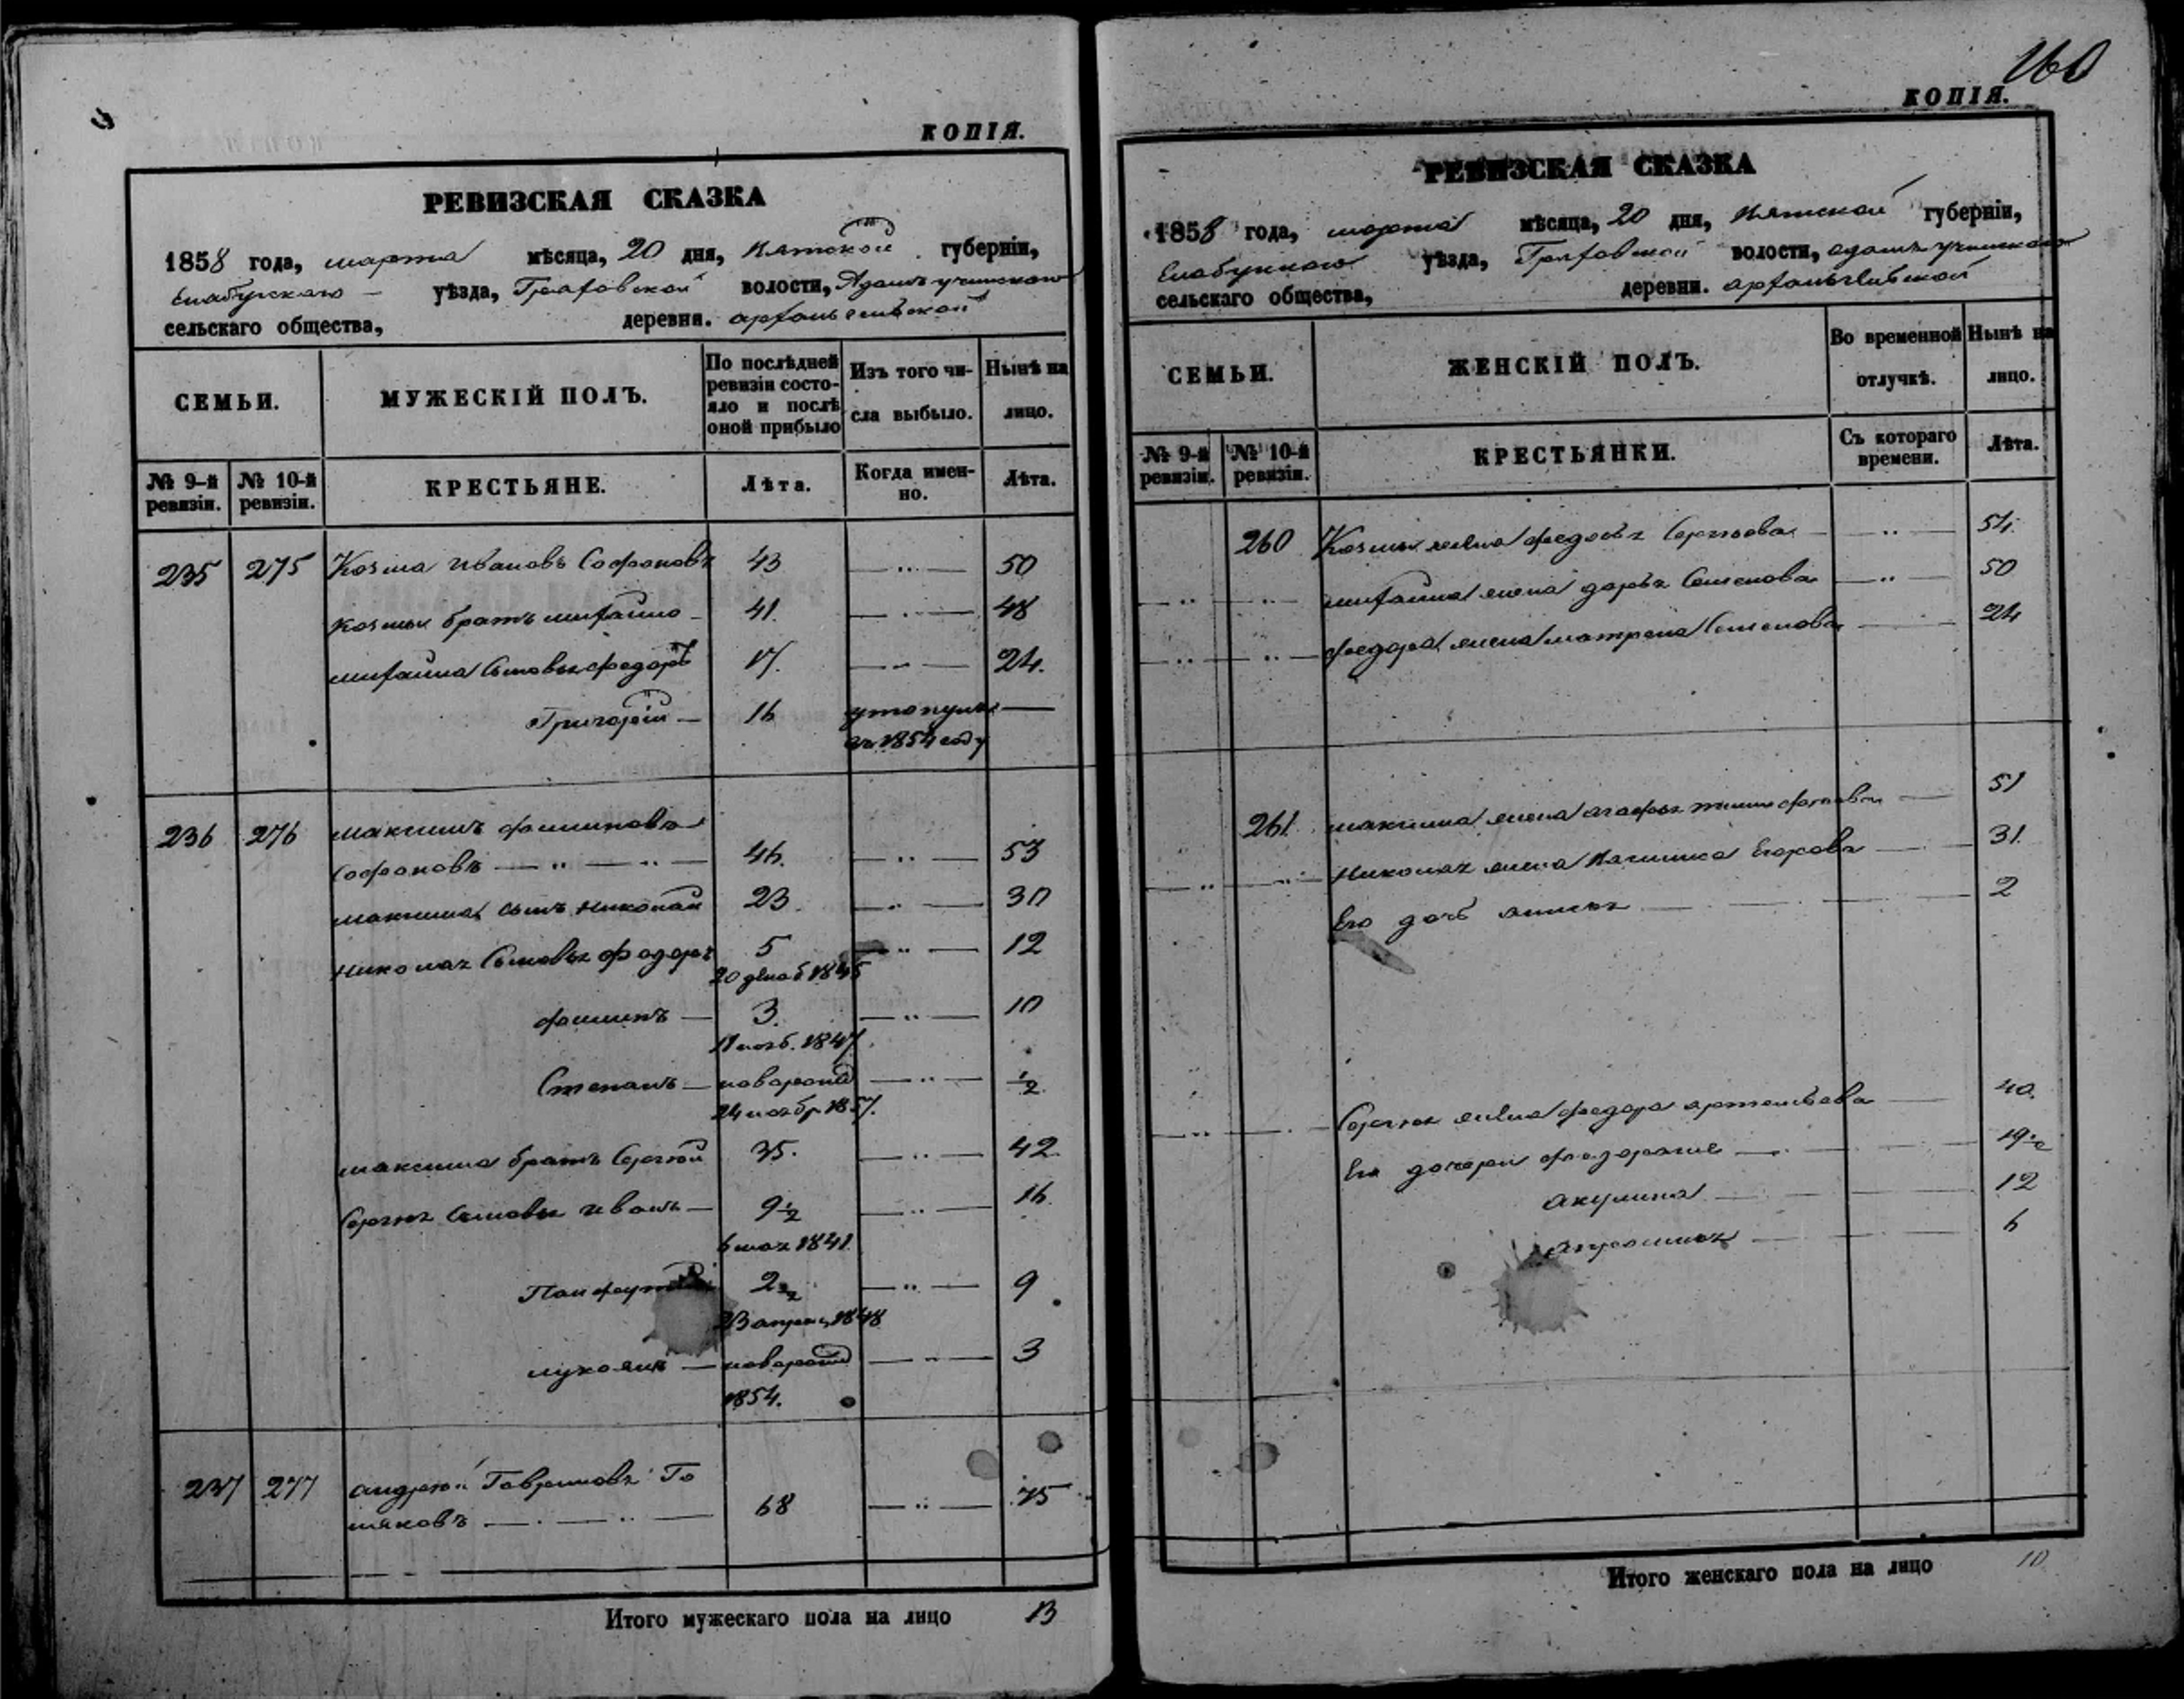 КОПІЯ.
РЕВИЗСКАЯ СКАЗКА
1858 года, марта мѣсяца, 20 дня, Вятской губерніи,
Елабужскаго уѣзда, Граховской волости,
сельскаго общества, деревни.
СЕМЬИ. МУЖЕСКІЙ ПОЛЪ. По послѣдней ревизіи состояло и послѣ оной прибыло Изъ того числа выбыло. Нынѣ на лицо.
№ 9-й ревизіи. № 10-й ревизіи. КРЕСТЬЯНЕ. Лѣта. Когда именно. Лѣта.
235 275 Козма Ивановъ Софроновъ 43 — „ — 50
Козмы братъ михайло — 41. — „ — 48
михайла Сыновья федоръ 17. — „ — 24.
Григорій — 16 утонулъ —
въ 1854 году
236 276 максимъ филиповъ
Софроновъ — „ — „ — 46. — „ — 53
максима сынъ николай 23 — „ — 30
николая Сыновья федоръ 5 — „ — 12
20 декаб 1845
филипъ — 3. — „ — 10
11 нояб. 1847
Степанъ — новорожд — „ — ½
24 ноябр 1857.
максима братъ Сергей 35. — „ — 42
Сергея Сыновья иванъ — 9½ — „ — 16.
6 мая 1841
2½ — „ — 9
23 апрел 1848
лукоянъ — новорожд — „ — 3
1854.
237 277 андрей Гавриловъ По
ляковъ — „ — 68 — „ — 75
Итого мужескаго пола на лицо 13
260
КОПІЯ.
РЕВИЗСКАЯ СКАЗКА
1858 года, марта мѣсяца, 20 дня, Вятской губерніи,
Елабужскаго уѣзда, Граховской волости,
сельскаго общества, деревни.
СЕМЬИ. ЖЕНСКІЙ ПОЛЪ. Во временной отлучкѣ. Нынѣ на лицо.
№ 9-й ревизіи. № 10-й ревизіи. КРЕСТЬЯНКИ. Съ котораго времени. Лѣта.
260 Козмы жена федосья Сергѣева — „ — 54.
— „ — „ — михайла жена дарья Семенова — „ — 50
— „ — „ — федора жена матрена Семенова — 24
261. максима жена агафья — 51
— „ — „ — Николая жена Егорова — 31.
Его дочь — 2
— „ — Сергея жена федора артемьева — 40.
Его дочери — 19½
акулина — 12
— 6
Итого женскаго пола на лицо 10